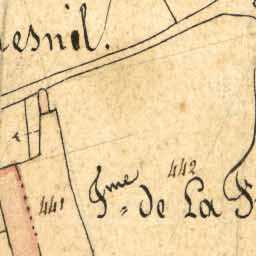 esnil.
442
F.me de La F
441